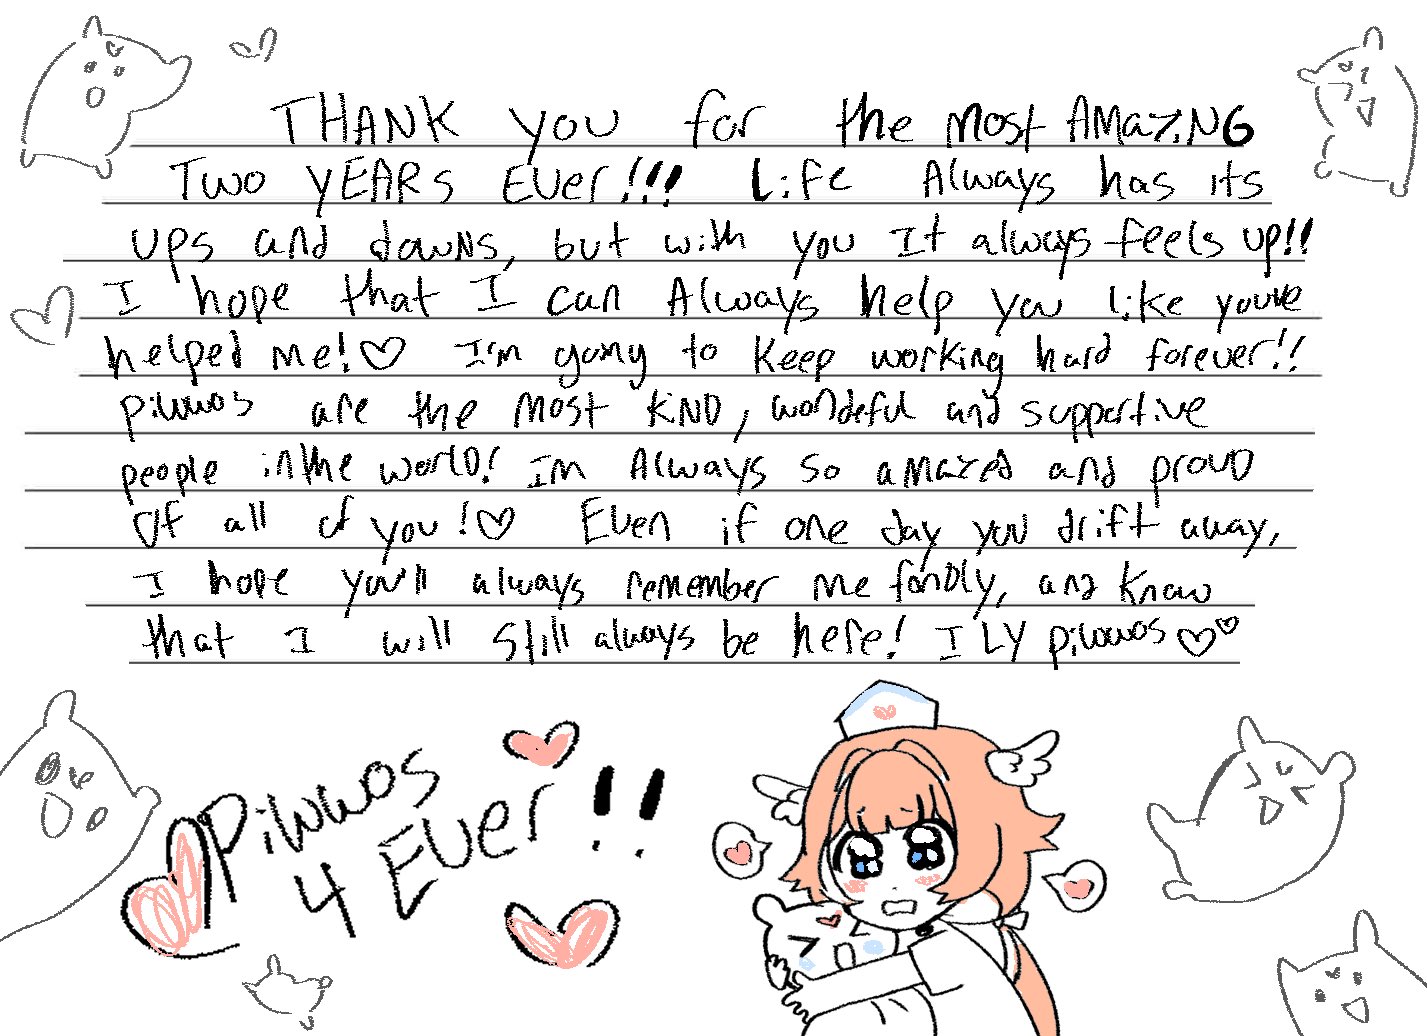 THANK you for the most AMAZING
Two YEARs Ever!!! Life Always has its
ups and downs, but with you It always feels up!!
I hope that I can Always help you like youve
helped me!♡ I'm going to keep working hard forever!!
piwwos are the most KIND, wondeful and supportive
people in the world! Im Always so amazed and proud
Of all of you!♡ Even if one day you drift away,
I hope you'll always remember me fondly, and know
that I will still always be here! I LY piwwos♡♡
Piwwos
4 Ever!!